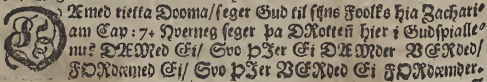 DÆmed rietta Dooma/ seger Gud til sijns Foolks hia Zachari-
am Cap: 7. Hverneg seger þa DRotteñ hier i Gudspialle-
nu? DÆMed Ei/ Svo ÞIer Ei DÆMder VERded/
FORdæmed Ei/ Svo ÞIer VERded Ei FORdæmder.